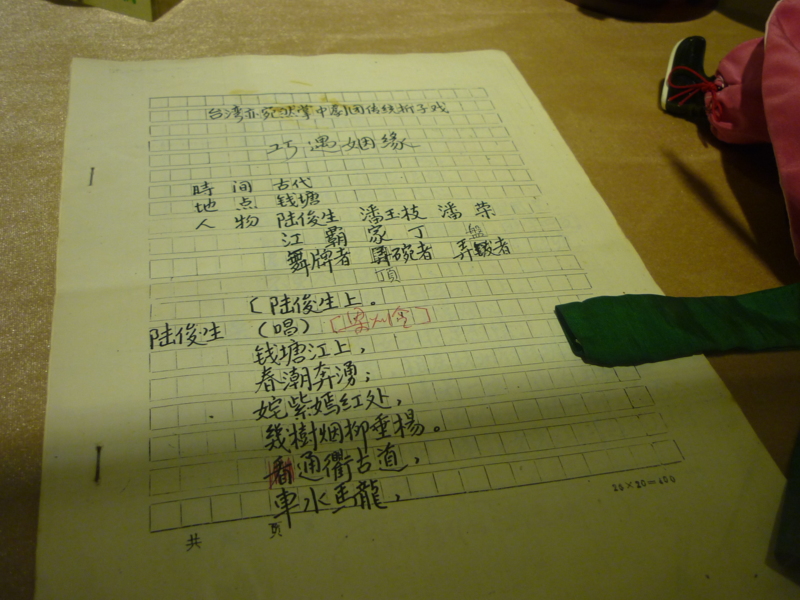 台湾亦宛然掌中剧团传统折子戏
巧遇姻缘
時 间 古代
地 点 钱塘
人 物 陆俊生 潘玉枝 潘荣
江霸 家丁 盤
舞牌者 弄碗者 弄皷者
頂
〔陆俊生上。
陆俊生 (唱)
钱塘江上,
春潮奔湧;
姹紫嫣红处,
幾樹烟柳垂楊。
看通衢古道,
車水馬龍,
20×20=400
共 页